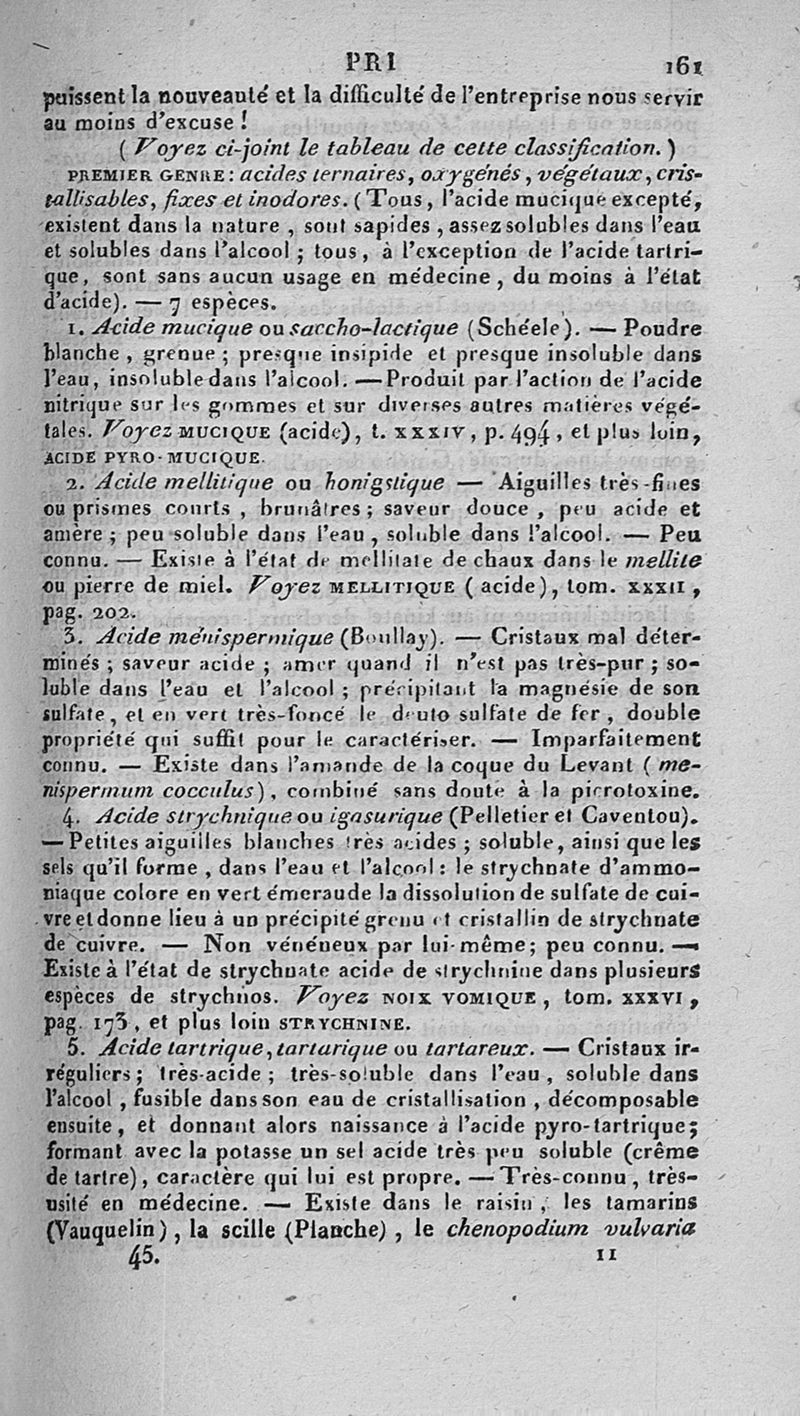 PRI 161
puissent la nouveauté et la difficulté de l'entreprise nous servir
au moins d'excuse !
( Voyez ci-joint le tableau de cette classification. )
PREMIER GENRE : acides ternaires, oxygénés, végétaux, cris-
tallisables, fixes et inodores. ( Tous, l'acide mucique excepté,
existent dans la nature , sont sapides , assez solubles dans l'eau
et solubles dans l'alcool ; tous, à l'exception de l'acide tartri-
que, sont sans aucun usage en médecine, du moins à l'état
d'acide). — 7 espèces.
1. Acide mucique ou saccho-lactique (Schéele). — Poudre
blanche , grenue ; presque insipide et presque insoluble dans
l'eau, insoluble dans l'alcool. — Produit par l'action de l'acide
nitrique sur les gommes et sur diverses autres matières végé-
tales. Voyez MUCIQUE (acide), t. XXXIV, p. 494, et plus loin,
ACIDE PYRO-MUCIQUE.
2. Acide mellitique ou honigstique — Aiguilles très-fines
ou prismes courts , brunâtres ; saveur douce , peu acide et
amère ; peu soluble dans l'eau, soluble dans l'alcool. — Peu
connu. — Existe à l'état de mellitate de chaux dans le mellite
ou pierre de miel. Voyez MELLITIQUE ( acide), tom. XXXII,
pag. 202.
3. Acide ménispermique (Boullay). — Cristaux mal déter-
minés ; saveur acide ; amer quand il n'est pas très-pur ; so-
luble dans l'eau et l'alcool ; précipitant la magnésie de son
sulfate, et en vert très-foncé le deuto sulfate de fer, double
propriété qui suffit pour le caractériser. — Imparfaitement
connu. — Existe dans l'amande de la coque du Levant ( me-
nispermum cocculus), combiné sans doute à la picrotoxine.
4. Acide strychnique ou igasurique (Pelletier et Caventou).
— Petites aiguilles blanches très acides ; soluble, ainsi que les
sels qu'il forme , dans l'eau et l'alcool : le strychnate d'ammo-
niaque colore en vert émeraude la dissolution de sulfate de cui-
vre et donne lieu à un précipité grenu et cristallin de strychnate
de cuivre. — Non vénéneux par lui-même; peu connu. —
Existe à l'état de strychnate acide de strychnine dans plusieurs
espèces de strychnos. Voyez NOIX VOMIQUE, tom. XXXVI,
pag. 173, et plus loin STRYCHNINE.
5. Acide tartrique, tartarique ou tartareux. — Cristaux ir-
réguliers ; très-acide ; très-soluble dans l'eau, soluble dans
l'alcool , fusible dans son eau de cristallisation , décomposable
ensuite, et donnant alors naissance à l'acide pyro-tartrique;
formant avec la potasse un sel acide très peu soluble (crême
de tartre), caractère qui lui est propre. — Très-connu, très-
usité en médecine. — Existe dans le raisin, les tamarins
(Vauquelin), la scille (Planche) , le chenopodium vulvaria
45. 11